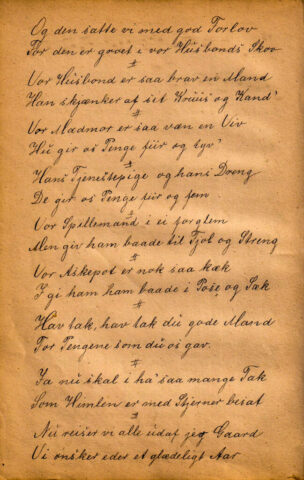 Og den satte vi med god Forlov
For den er groet i vor Husbonds Skov
#
Vor Husbond er saa brav en Mand
Han skjænker af sit Kruus og Kand'
#
Vor Madmor er saa væn en Viv
Hu gir os Penge fiir og syv'
#
Hans Tjenestepige og hans Dreng
De gir os Penge fiir og fem
#
Vor Spillemand i ei forglem
Men giv ham baade til Fjol og Streng
#
Vor Askepot er nok saa kæk
I gi ham ham baade i Pose og Sæk
#
Hav tak, hav tak du gode Mand
For Pengene som du os gav.
#
Ja nu skal i ha' saa mange Tak
Som Himlen er med Stjerner besat
#
Nu reiser vi alle udaf jeg Gaard
Vi ønsker eder et glædeligt Aar